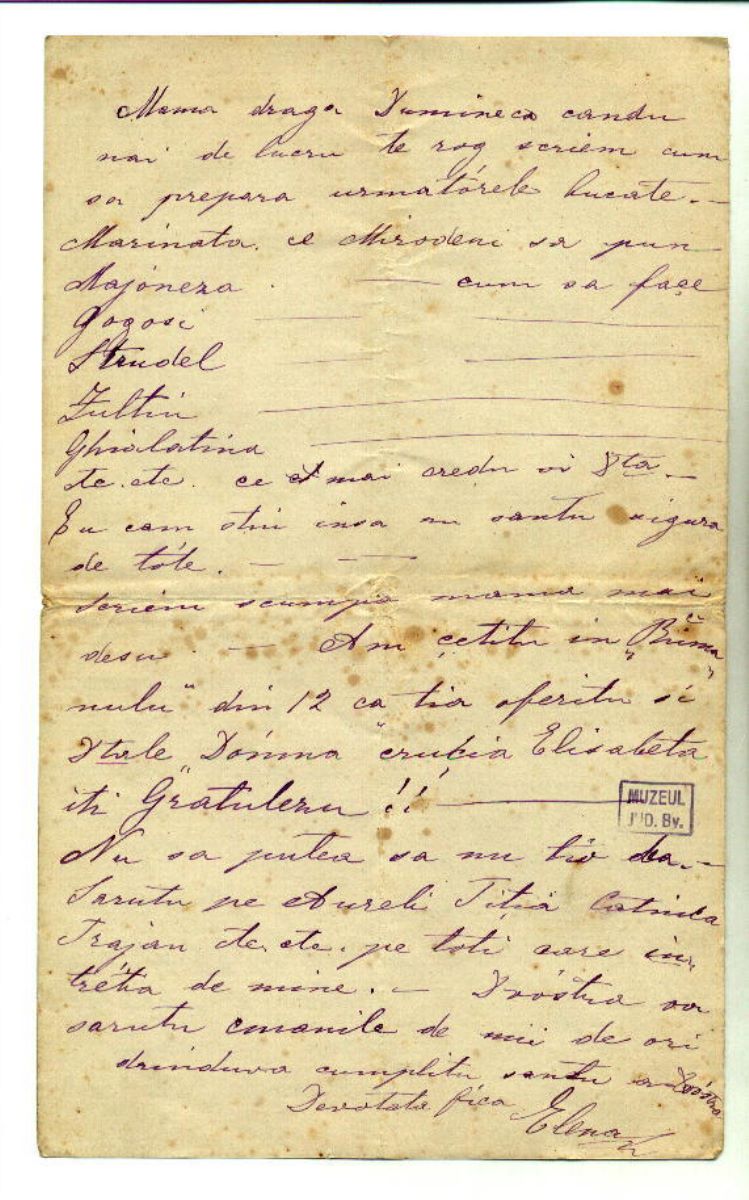 Mama draga Dumineca candu
nai de lucru te rog scriem cum
sa prepara urmatórele bucate. —
Marinata. ce Mirodeni sa pun
Majóneza . — cum sa façe
Gogosi
Strudel
Zultiu
Ghialatina
etc. etc. ce mai credu si Dta. —
Eu cam stiu insa nu santu sigura
de tóte. — —
Scriem scumpa mama mai
desu. — Am çetitu in „Róma
nulu" din 12 ca tia oferitu si
Dtale „Dómna" crucia Elisabeta
iti Gratulezu !! —
MUZEUL
JUD. Bv.
Nu sa putea sa nu tio dea. —
Sarutu pe Aureli Titia Catinca
Trajan etc. etc. pe toti care in
tréba de mine. — Dvóstra va
sarutu manile de mii de ori
dorinduva cumplitu santu a Dvóstra
Devotata fica Elena